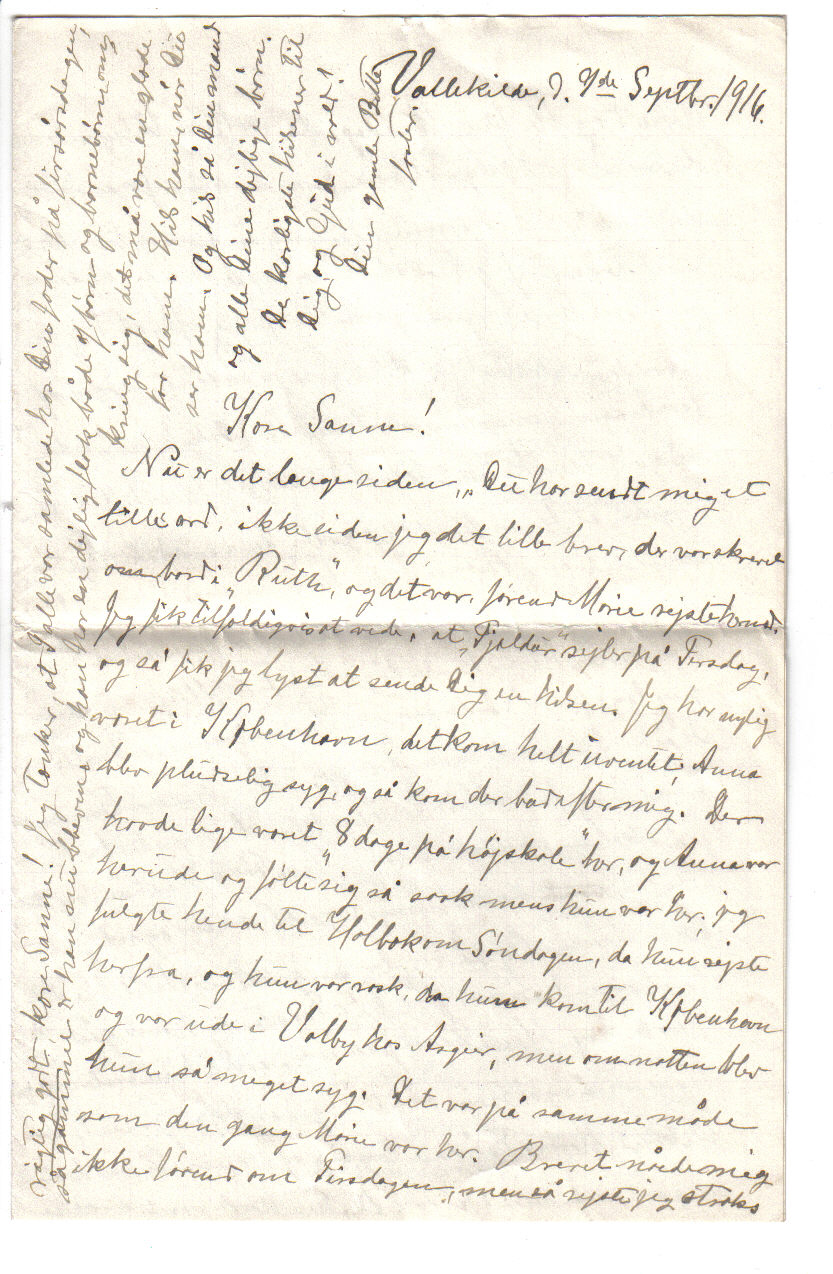 Vallekilde, d. 9de Septbr. 1916.
Kære Sanne!
Nu er det længe siden, Du har sendt mig et
lille ord, ikke siden jeg det lille brev, der var skrevet
om bord i "Ruth", og det var, førend Marie rejste herned.
Jeg fik tilfældigvis at vide, at "Fjaldur" sejler på Tirsdag,
og så fik jeg lyst at sende Dig en hilsen. Jeg har nylig
været i København, det kom helt uventet, Anna
blev pludselig syg, og så kom der bud efter mig. Der
havde lige været "8 dage på højskole" her, og Anna var
herude og følte sig så rask mens hun var her, jeg
fulgte hende til Holbæk om Søndagen, da hun rejste
herfra, og hun var rask, da hun kom til København
og var ude i Valby hos Asgeir, men om natten blev
hun så meget syg. Det var på samme måde
som den gang Marie var her. Brevet nåede mig
ikke førend om Tirsdagen, men så rejste jeg straks
rigtig godt, kære Sanne! Jeg tænker, at I alle var samlede hos Din fader på firsårsdagen,
så gammel er han nu bleven, og han har en dejlig flok både af børn og børnebørn om
kring sig, det må være en glæde
for ham. Hils ham, når Du
ser ham. Og hils så Din mand
og alle Dine dejlige børn.
De kærligste hilsener til
Dig, og Gud i vold!
Din gamle Balle